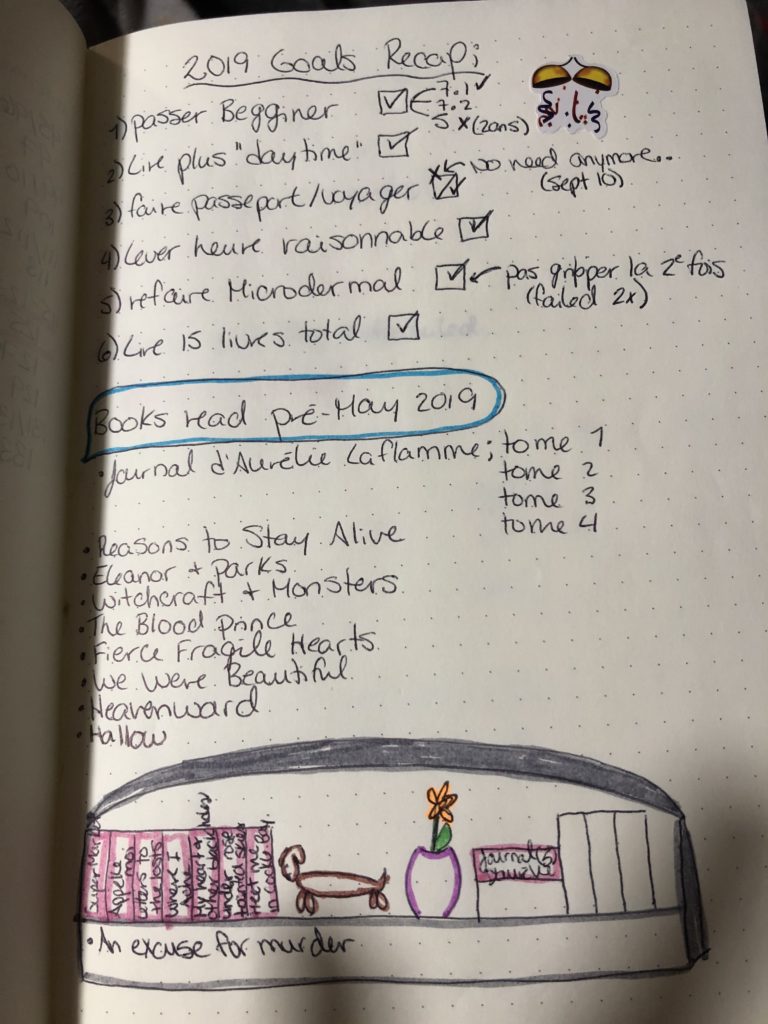 2019 Goals Recap;
1) passer Begginer 7.1 ✓
7.2
5 x (2ans)
2) Lire plus "daytime"
3) faire passeport/voyager No need anymore..
(sept 10)
4) Lever heure raisonnable
5) refaire Microdermal pas gripper la 2e fois
(failed 2x)
6) Lire 15 livres total
Books read pré-May 2019
• Journal d'Aurélie Laflamme; tome 1
tome 2
tome 3
tome 4
• Reasons to Stay Alive
• Eleanor + Parks
• Witchcraft + Monsters
• The Blood Prince
• Fierce Fragile Hearts
• We Were Beautiful
• Heavenward
• Hallow
Appelle moi
letters to
the lost
where I
My heart +
other black holes
under rose
tainted skies
Meet me
in
Bay
Journal(5)
• An excuse for murder